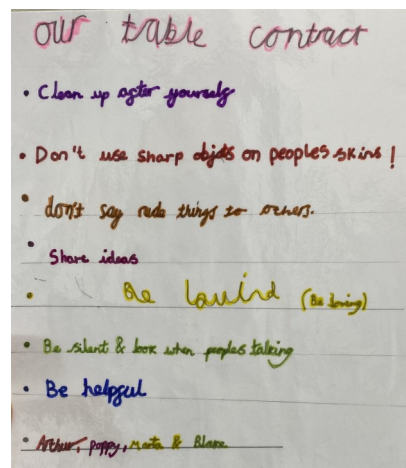 our table contact
• Clean up after yourself
• Don't use sharp objets on peoples skins!
• don't say rude things to others.
• Share ideas
• Be lauind (Be loving)
• Be silent & look when peoples talking
• Be helpful
• Arthur, poppy, Marta & Blake